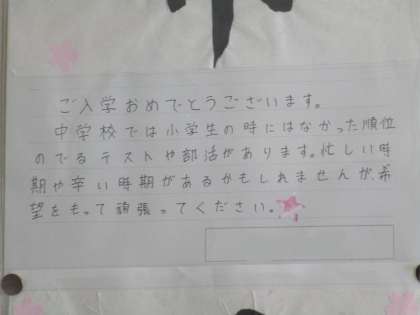 ご入学おめでとうございます。
中学校では小学生の時にはなかった順位
のでるテストや部活があります。忙しい時
期や辛い時期があるかもしれませんが、希
望をもって頑張ってください。